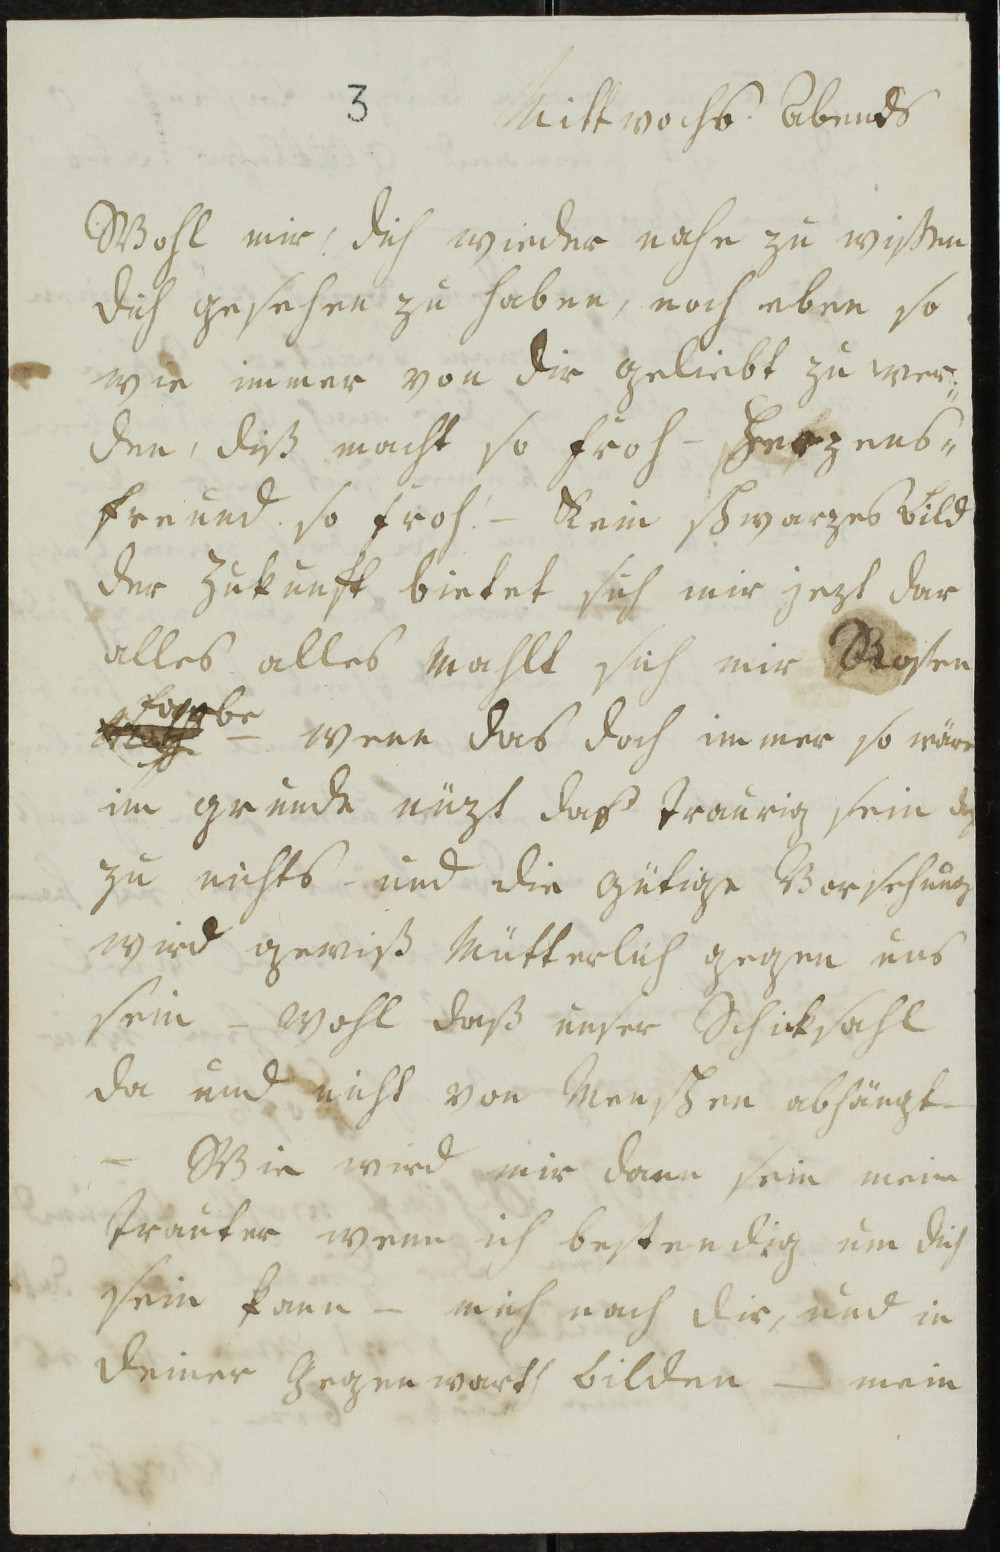 3 Mittwochs. Abends
Wohl mir! dich wieder nahe zu wißen
dich gesehen zu haben, noch eben so
wie immer von dir geliebt zu wer=
den, diß macht so froh – Herzens=
freund. so froh! – Kein schwarzes Bild
der Zukunft bietet sich mir jezt dar
alles alles Mahlt sich mir Rosen
farbe – wenn das doch immer so wäre
im grunde nüzt daß traurig sein
zu nichts – und die gütige Vorsehung
wird gewiß Mütterlich gegen uns
sein – Wohl daß unser Schicksahl
da und nicht von Menschen abhängt –
– Wie wird mir dann sein mein
trauter wenn ich bestendig um dich
sein kann – mich nach dir, und in
deiner Gegenwarth bilden – mein